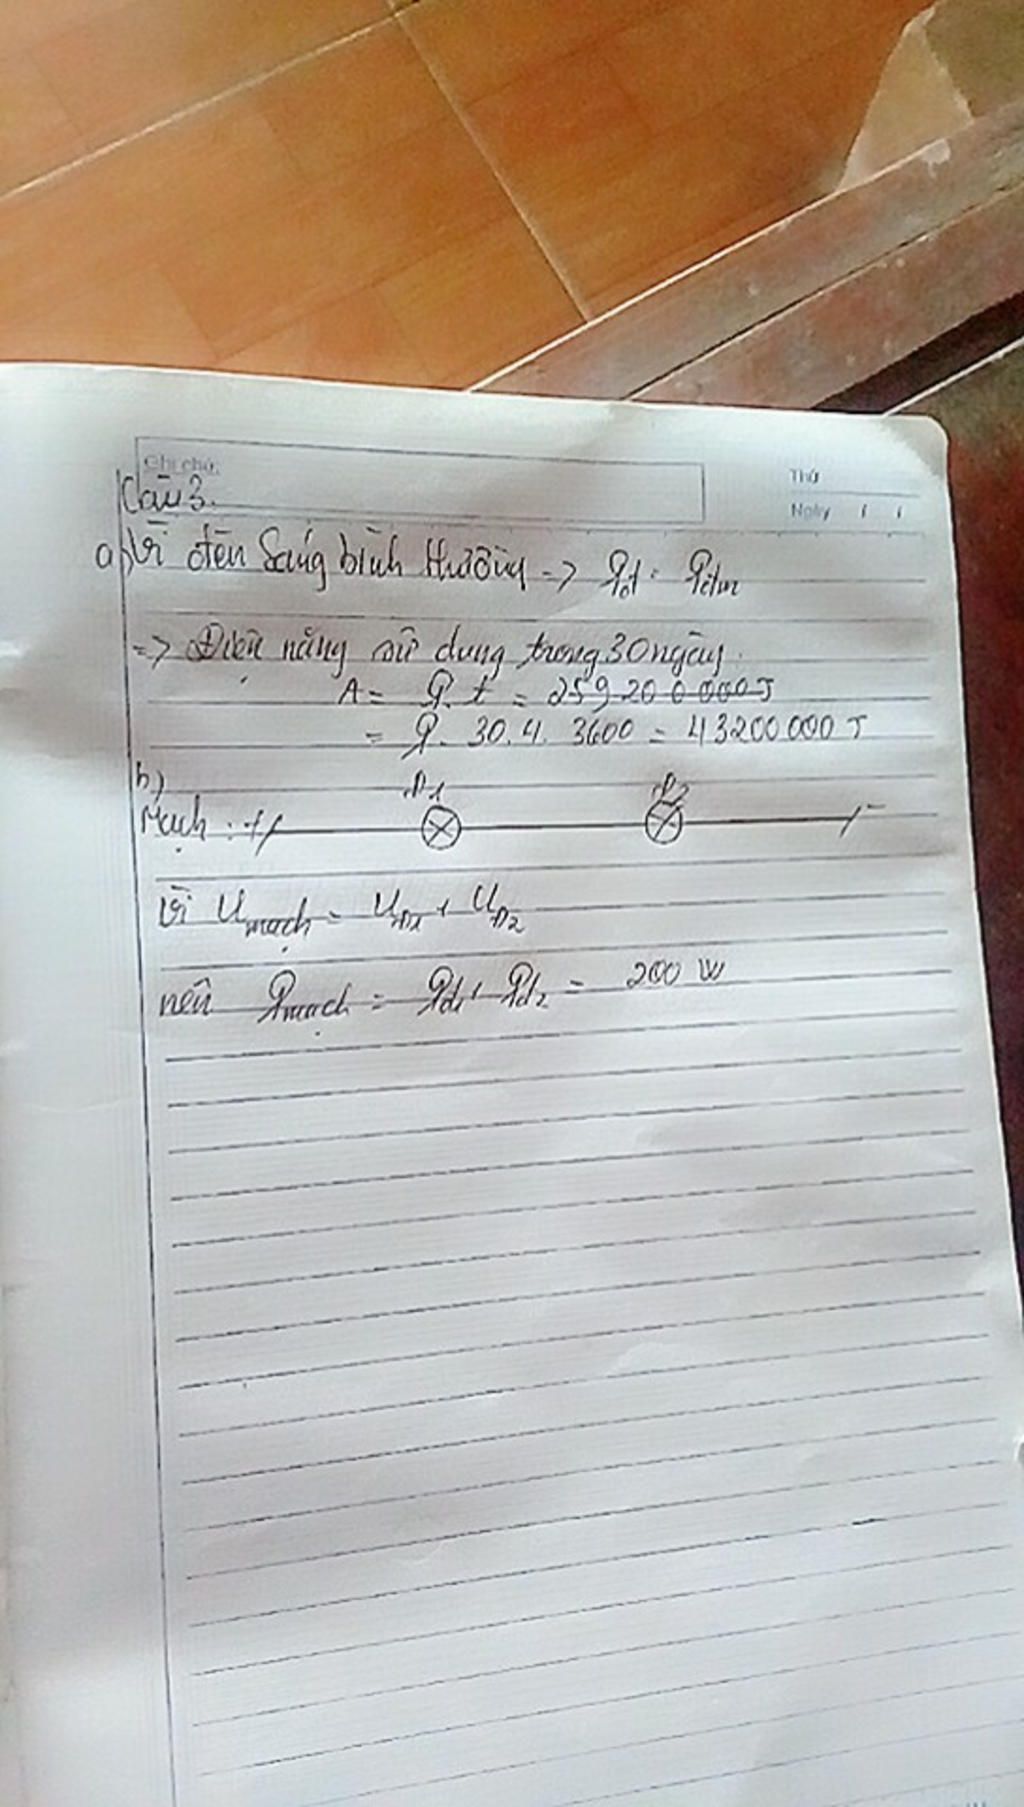 Ghi chú:
Thứ
Ngày / /
Câu 3.
a, Vì đèn sáng bình thường => Pđ = Pđm
=> Điện năng sử dụng trong 30 ngày.
A = P. t = 259 200 000 J
= P. 30. 4. 3600 = 43200 000 J
b)
Đ1 Đ2
Mạch : + -
Vì Umạch = UĐ1 + UĐ2
nên Pmạch = Pđ1 + Pđ2 = 200 W